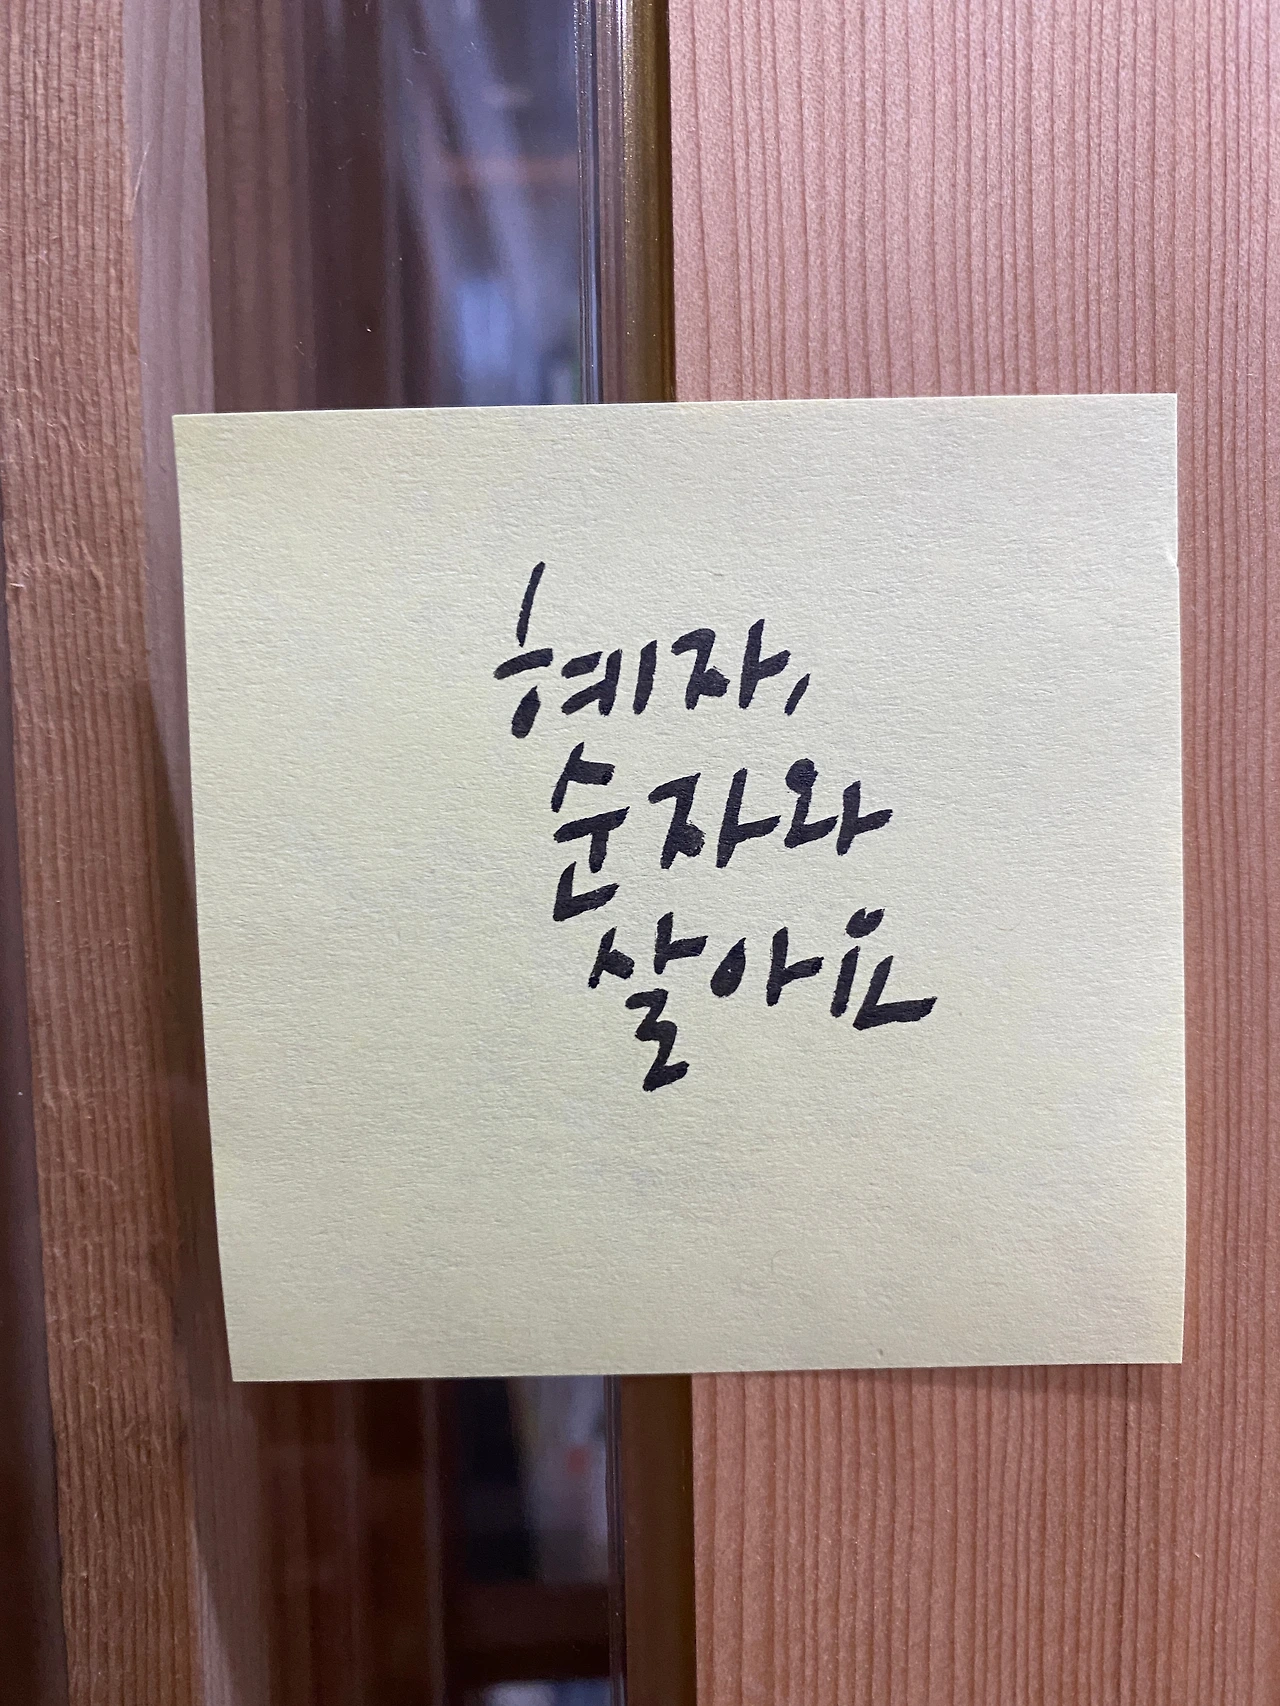 혜자,
순자와
살아요